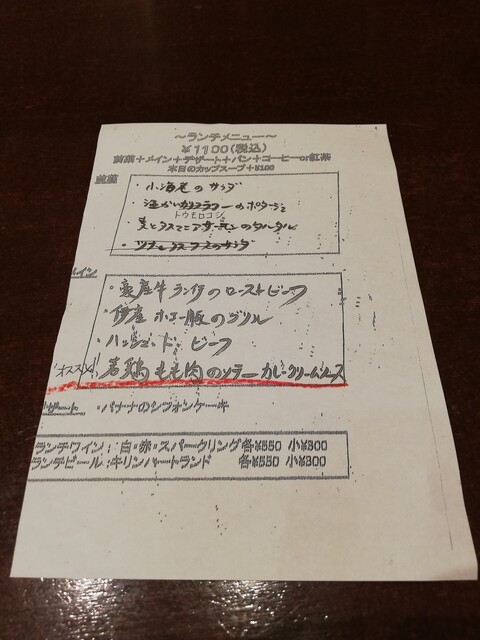 ～ランチメニュー～
¥1100(税込)
前菜＋メイン＋デザート＋パン＋コーヒーor紅茶
本日のカップスープ＋¥100
前菜
・小海老のサラダ
・温かいカリフラワーのポタージュ
トウモロコシ
・真ダコとタスマニアサーモンのタルタル
・ツナとレタスのサラダ
メイン
・豪産牛ランプのローストビーフ
・伊産ホエー豚のグリル
・ハッシュ・ド・ビーフ
オススメ!! 若鶏もも肉のソテー カレークリームソース
デザート ・バナナのシフォンケーキ
ランチワイン：白・赤・スパークリング各¥550 小¥300
ランチビール：キリンハートランド 各¥550 小¥300